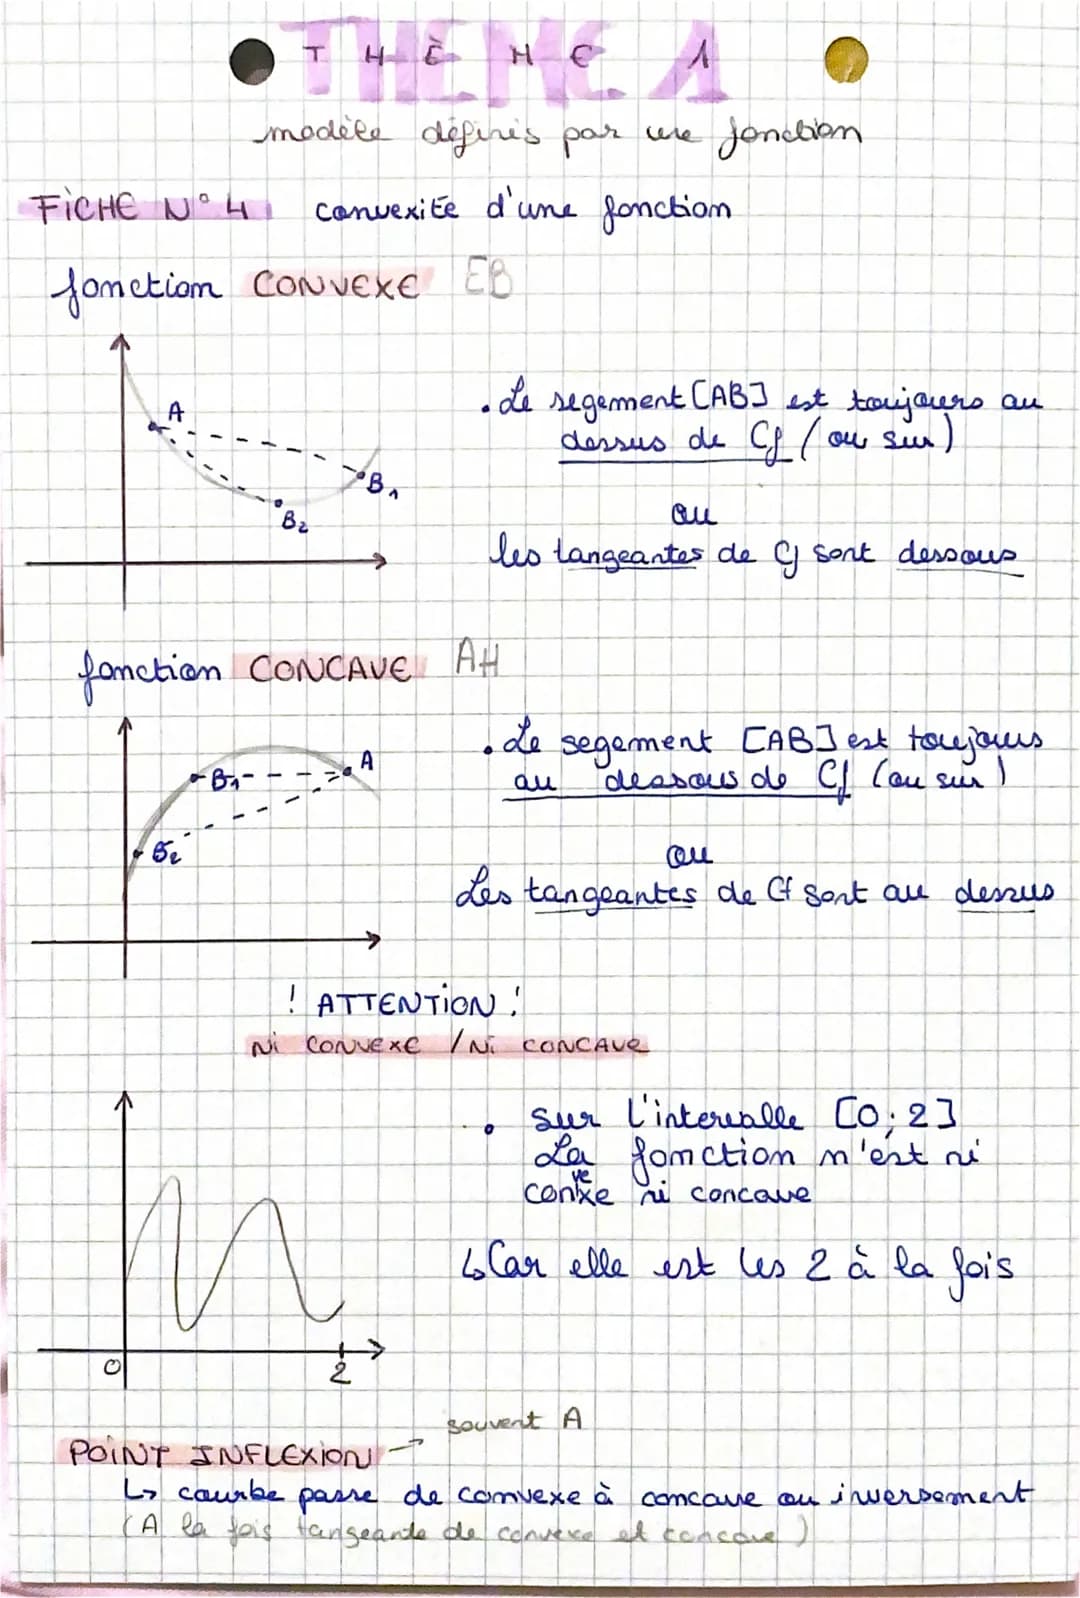 THÈME 1
modèle définis par une fonction
FICHE N° 4 convexité d'une fonction
fonction CONVEXE EB
A
B1
B2
. Le segement [AB] est toujours au
dessus de Cf (ou sur)
ou
les tangeantes de Cf sont dessous
fonction CONCAVE AH
B1
A
B2
. Le segement [AB] est toujours
au dessous de Cf (ou sur)
ou
Les tangeantes de Cf sont au dessus
! ATTENTION !
Ni CONVEXE / Ni CONCAVE
0
2
. Sur l'intervalle [0;2]
La fonction n'est ni
convexe ni concave
↳ Car elle est les 2 à la fois
POINT INFLEXION → souvent A
↳ courbe passe de convexe à concave ou inversement
(A la fois tangeante de convexe et concave)